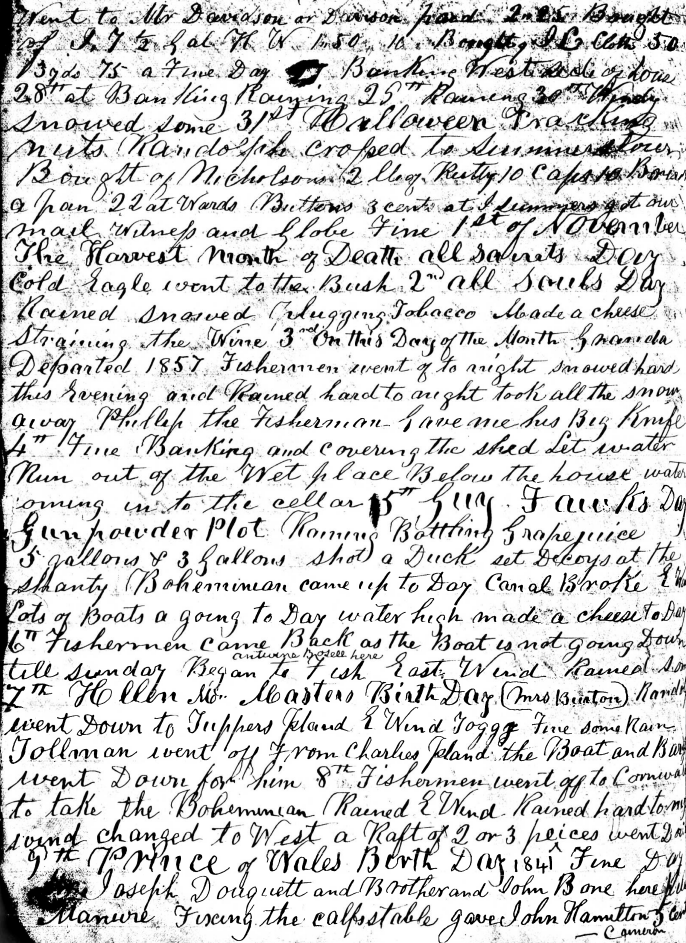 Went to Mr Davidson or Davison paid 2.25 Bought
of J. 7 ½ G at H W 1.50 10 Bought of J L Cloth 50
13 yds 75 a Fine Day Banking West side of house
28th at Banking Raining 29th Raining 30th Windy
snowed some 31st Halloween Cracking
nuts Randolph crossed to Summerstown
Bought of Nicholson 2 lbs Putty 10 Caps 10
a pan 22 at Wards Buttons 3 cents at J Summers got our
mail Witness and Globe Fine 1st of November
The Harvest Month of Death all saints Day
Cold Eagle went to the Bush 2nd all souls Day
Rained snowed Plugging Tobacco Made a cheese
straining the Wine 3rd On this Day of the Month Granda
Departed 1857 Fishermen went of to night snowed hard
this Evening and Rained hard to night took all the snow
away Phillip the Fisherman Gave me his Big Knife
4th Fine Banking and covering the shed Let water
Run out of the Wet place Below the house water
coming in to the cellar 5th Guy Fawks Day
Gunpowder Plot Raining Bottling Grapejuice
5 gallons & 3 Gallons shot a Duck set Decoys at the
shanty Boheminian came up to Day Canal Broke E
Lots of Boats a going to Day water high made a cheese to Day
6th Fishermen came Back as the Boat is not going Down
antwine Bosell here
till sunday Began to Fish East Wind Rained
7th Hellen Mc Masters Birth Day (Mrs Burton)
went Down to Tuppers Island E Wind Foggy Fine some Rain
Tollman went off From Charlies Island the Boat and
went Down for him 8th Fishermen went off to Cornwall
to take the Boheminian Rained E Wind Rained hard to
wind changed to West a Raft of 2 or 3 peices went
9th Prince of Wales Birth Day 1841 Fine Day
Joseph Douquett and Brother and John Bone here
Manure Fixing the calfs stable gave John Hamilton 5
Cameron